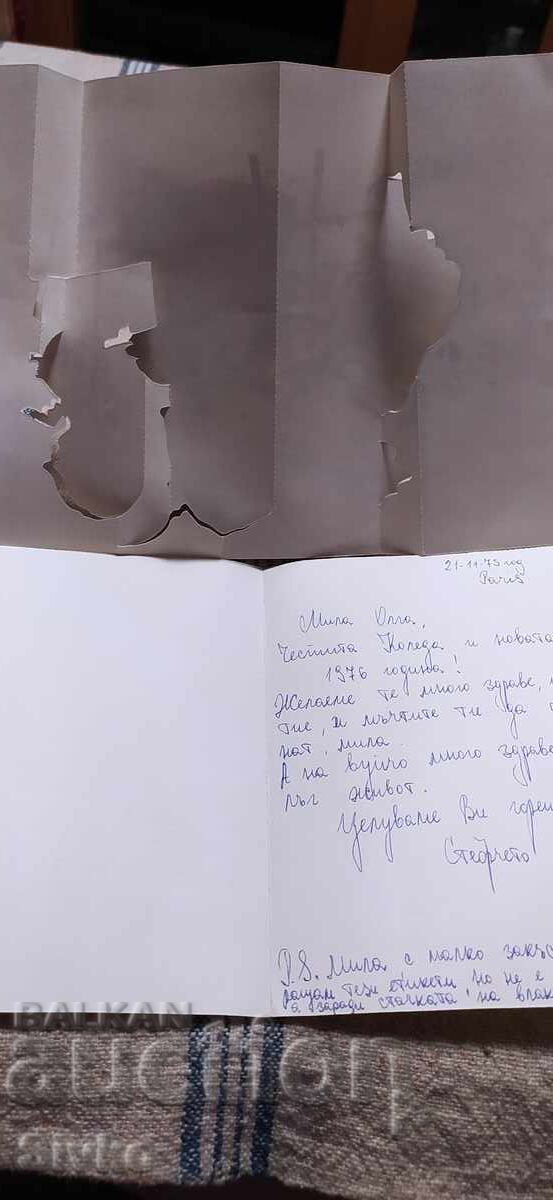 21-11-75 год
Paris
Мила Олга,
Честита Коледа и новата
1976 година!
Желаеме те много здраве,
тие, и мъчтите ти да
нат, мила.
А на вуйчо много здраве
лъг живот.
Целуваме Ви горе
Стефчето
P.S. Мила с малко закъс
ращам тези етикети но не е
а заради стачката на влак
BALKAN
auction